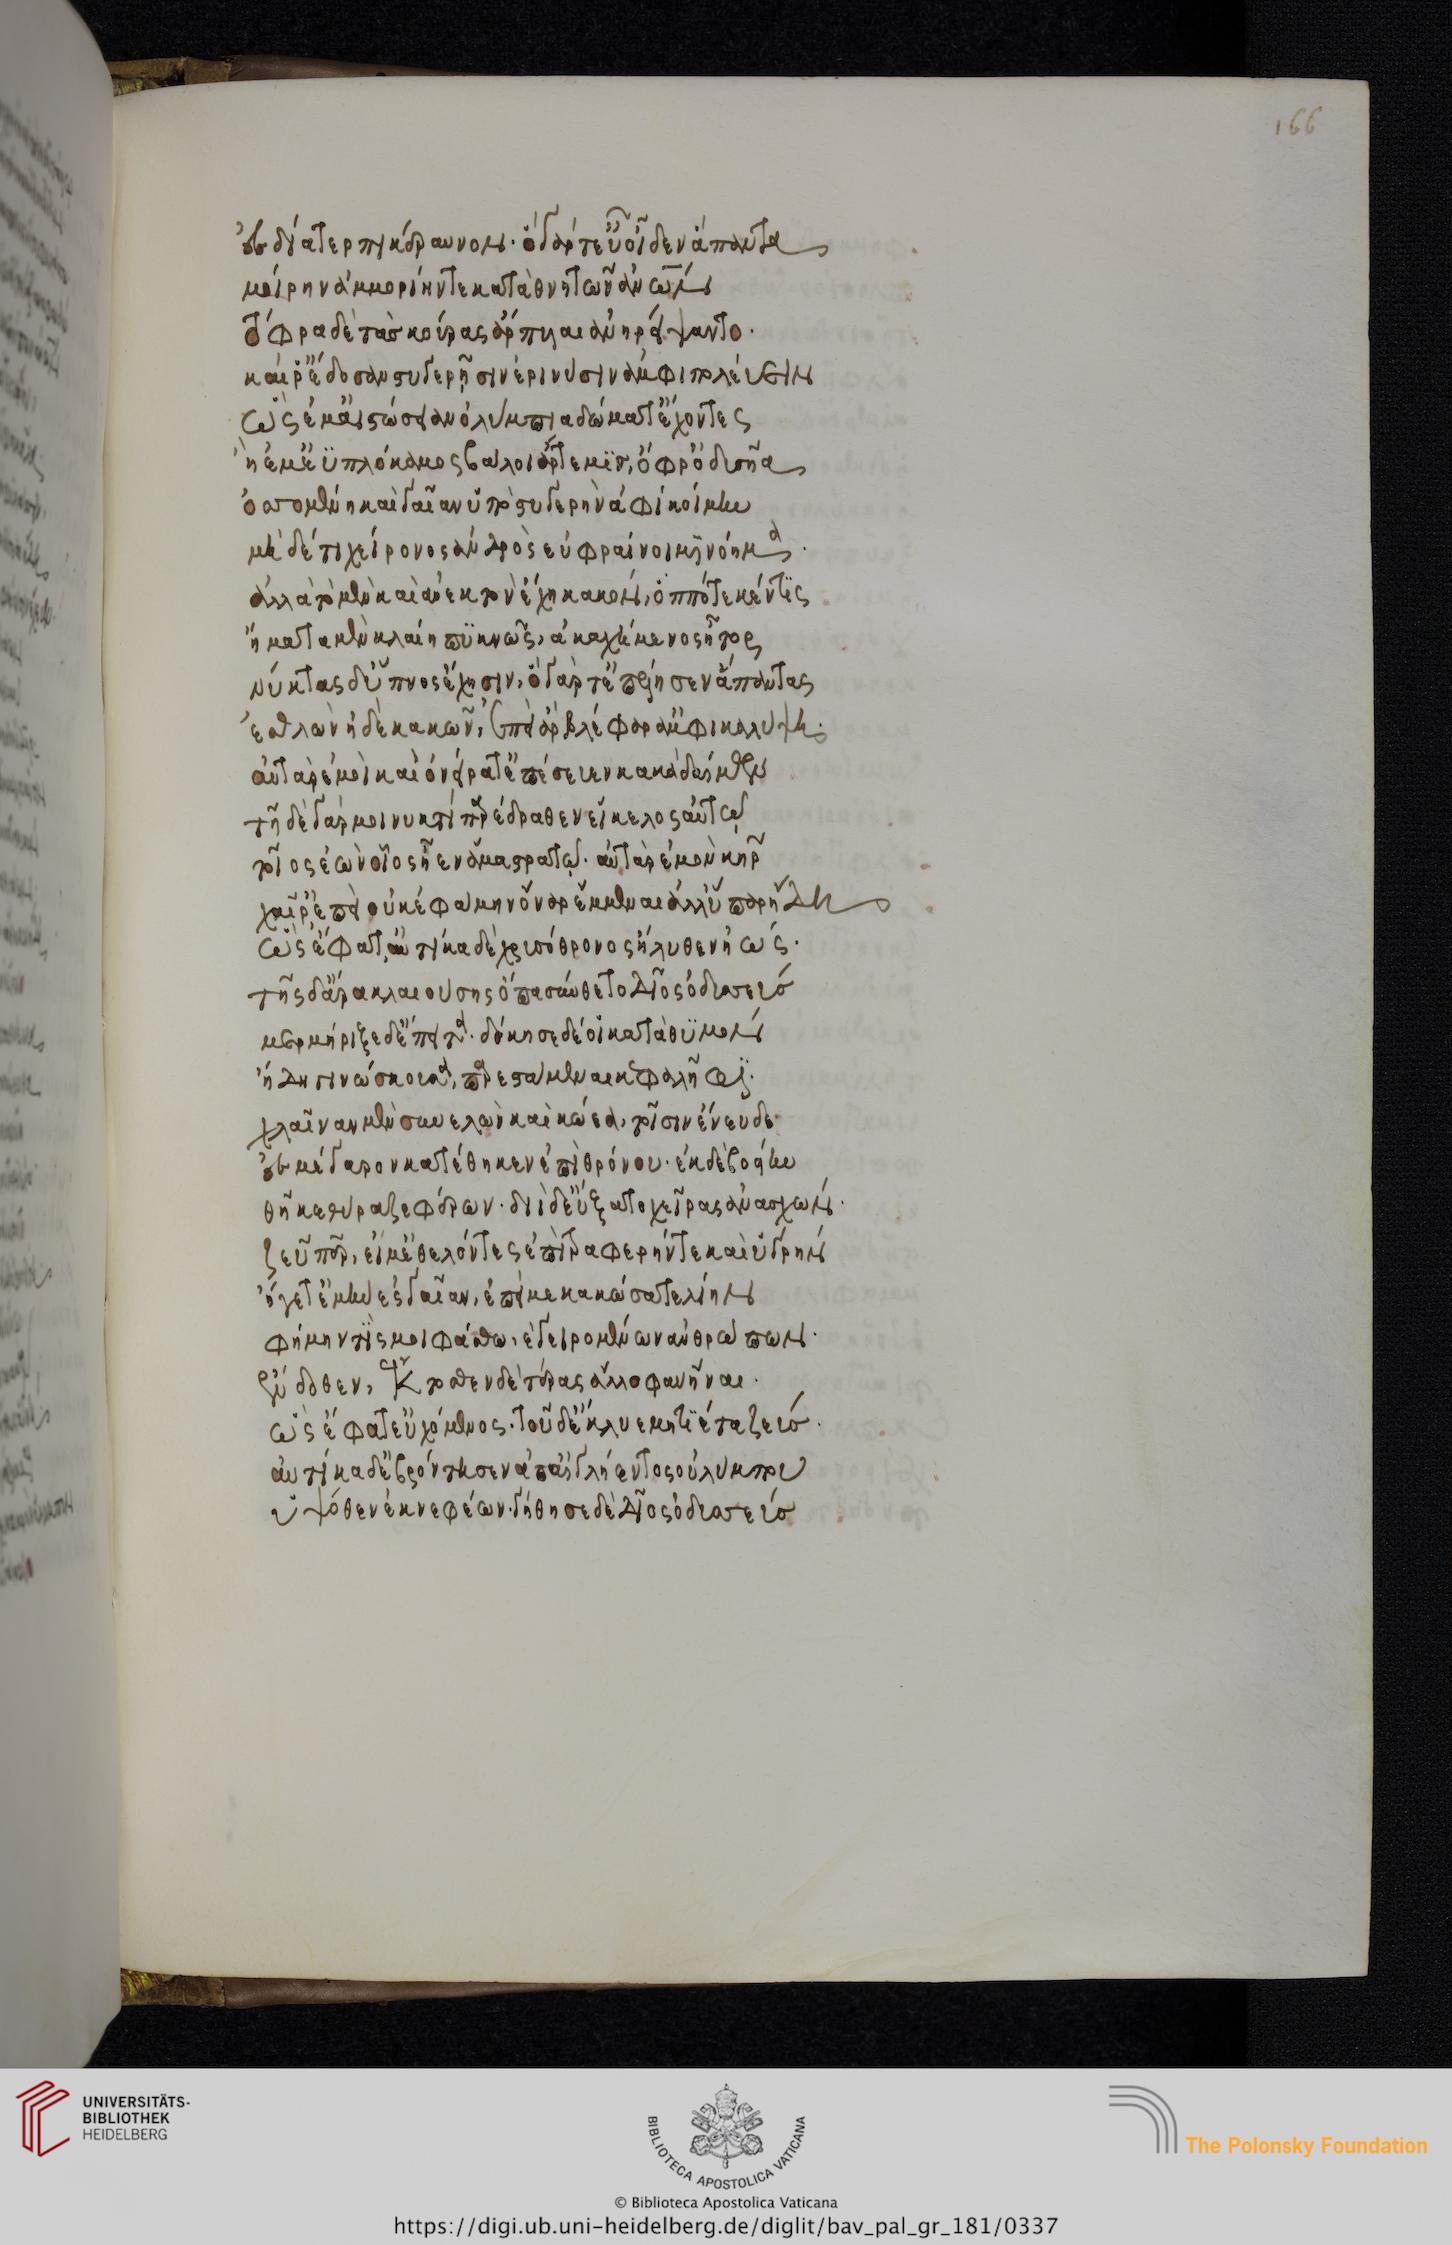 ἐς δία τερπικέραυνον· ὁ γάρ τευ οἶδεν ἅπαντα
μοίρην ἀμμορίην τε καταθνητῶν ἀνων
τόφρα δὲ τὰς κούρας ἅρπυιαι ἀνηρείψαντο·
καί ῥ' ἔδοσαν στυγερῇσιν ἐρινύσιν ἀμφιπολεύειν
ὣς ἔμ' ἀϊστώσειαν ὀλύμπια δώματ' ἔχοντες
ἠέ μ' ἐϋπλόκαμος βάλοι ἄρτεμϊς, ὄφρ' ὀδυσῆα
ὀσσομένη καὶ γαῖαν ὑπὸ στυγερὴν ἀφικοίμην
μηδέ τι χείρονος ἀνδρὸς εὐφραίνοιμϊ νόημα·
ἀλλὰ τὸ μὲν καὶ ἀνεκτὸν ἔχῃ κακὸν, ὁππότε κέν τϊς
ἤματα μὲν κλαίῃ πϋκνῶς, ἀκαχήμενος ἦτορ
νύκτας δ' ὕπνος ἔχῃσιν, ὁ γάρ τ' ἐπέλησεν ἅπαντας
ἐσθλῶν ἠδὲ κακῶν, ἐπεὶ ἂρ βλέφαρ' ἀμφικαλύψῃ·
αὐτὰρ ἐμοὶ καὶ ὀνείρατ' ἐπέσευεν κακὰ δαίμων
τῇδε γάρ μοι νυκτὶ παρέδραθεν εἴκελος αὐτῷ
τοῖος ἐὼν οἷος ἦεν ἅμα στρατῷ· αὐτὰρ ἐμὸν κῆρ
χαῖρ' ἐπεὶ οὐκ ἐφάμην ὄναρ ἔμμεναι ἀλλ' ὕπαρ ἤδη
ὣς ἔφατ, αὐτίκα δὲ χρυσόθρονος ἤλυθεν ἠώς·
τῆς δ' ἄρα κλαιούσης ὄπα σύνθετο δῖος ὀδυσσεύς
μερμήριξε δ' ἔπειτα· δόκησε δέ οἱ κατὰ θϋμὸν
ἤδη γινώσκουσα, παρεστάμεναι κεφαλῆφϊ·
χλαῖναν μὲν συνελὼν καὶ κώεα, τοῖσιν ἐνεῦδε
ἐς μέγαρον κατέθηκεν ἐπὶ θρόνου· ἐκ δὲ βοείην
θῆκε θύραζε φέρων· διὶ δ' εὔξατο χεῖρας ἀνασχών·
ζεῦ πάτερ, εἴ μ' ἐθέλοντες ἐπὶ τραφερήν τε καὶ ὑγρὴν
ἤγετ' ἐμὴν ἐς γαῖαν, ἐπεί με κακώσατε λίην
φήμην τίς μοι φάσθω, ἐγειρομένων ἀνθρώπων·
ἔνδοθεν, ἔκτοθεν δὲ τέρας ἄλλο φανῆναι·
ὣς ἔφατ' εὐχόμενος· τοῦ δ' ἔκλυε μητίετα ζεύς·
αὐτίκα δ' ἐβρόντησεν ἀπ' αἰγλήεντος οὐλύμπου
ὑψόθεν ἐκ νεφέων· γήθησε δὲ δῖος ὀδυσσεύς
166
UNIVERSITÄTS-
BIBLIOTHEK
HEIDELBERG
BIBLIOTECA APOSTOLICA VATICANA
The Polonsky Foundation
© Biblioteca Apostolica Vaticana
https://digi.ub.uni-heidelberg.de/diglit/bav_pal_gr_181/0337